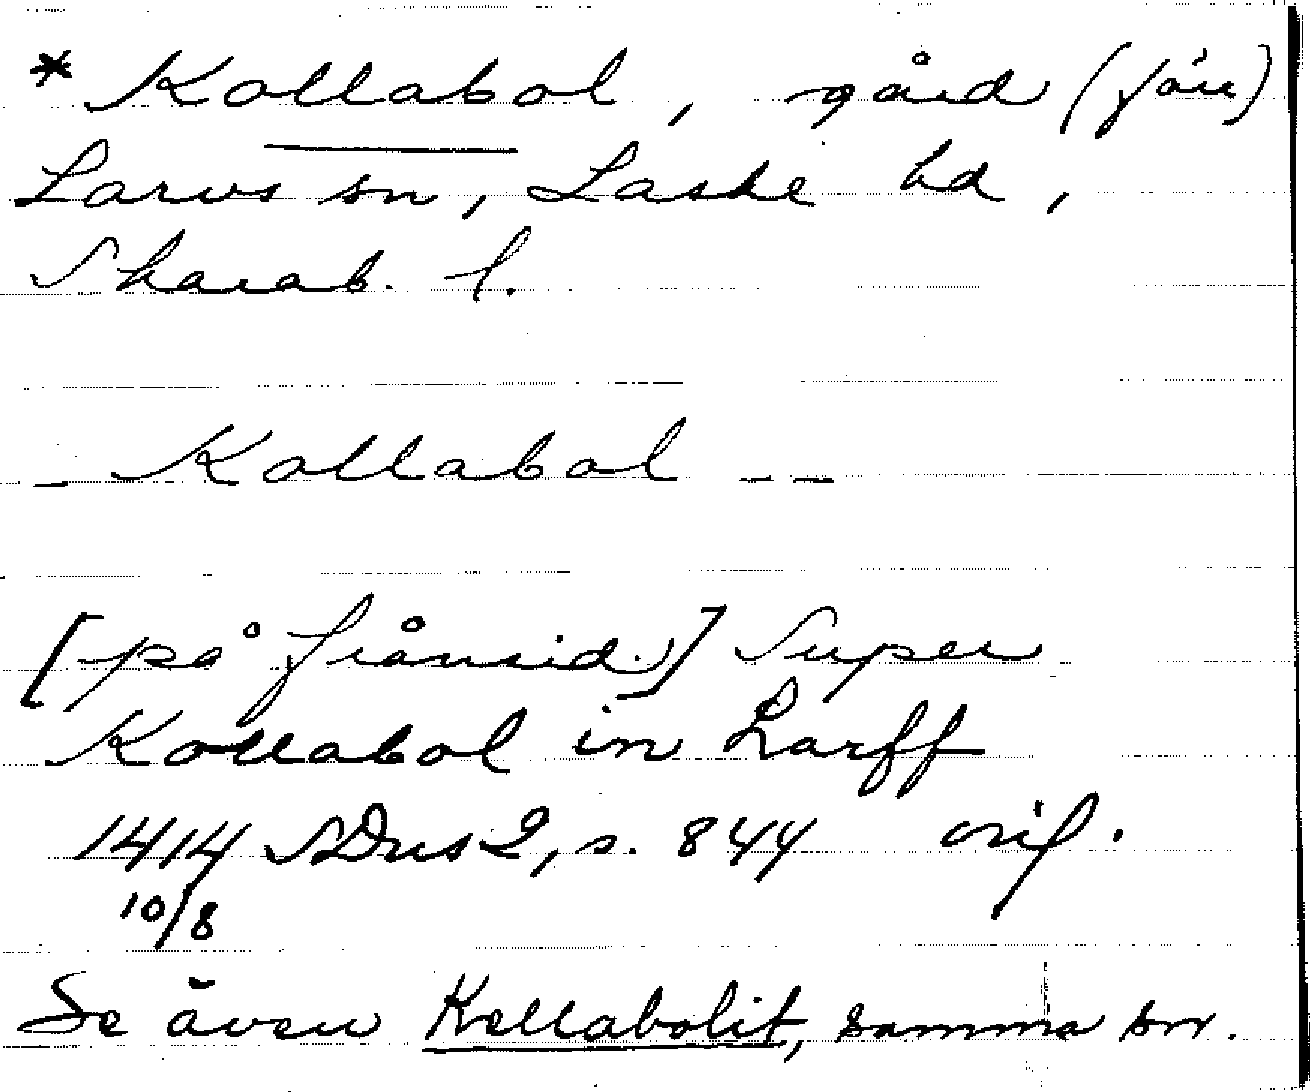 * Kollabol, gård (förr)
Larvs sn, Laske hd,
Skarab. l.
_ Kollabol _ _
[på frånsid.] Super
Kollabol in Larff
1414 SDns 2, s. 844 orig.
10/8
Se även Kellabolit, samma sn.